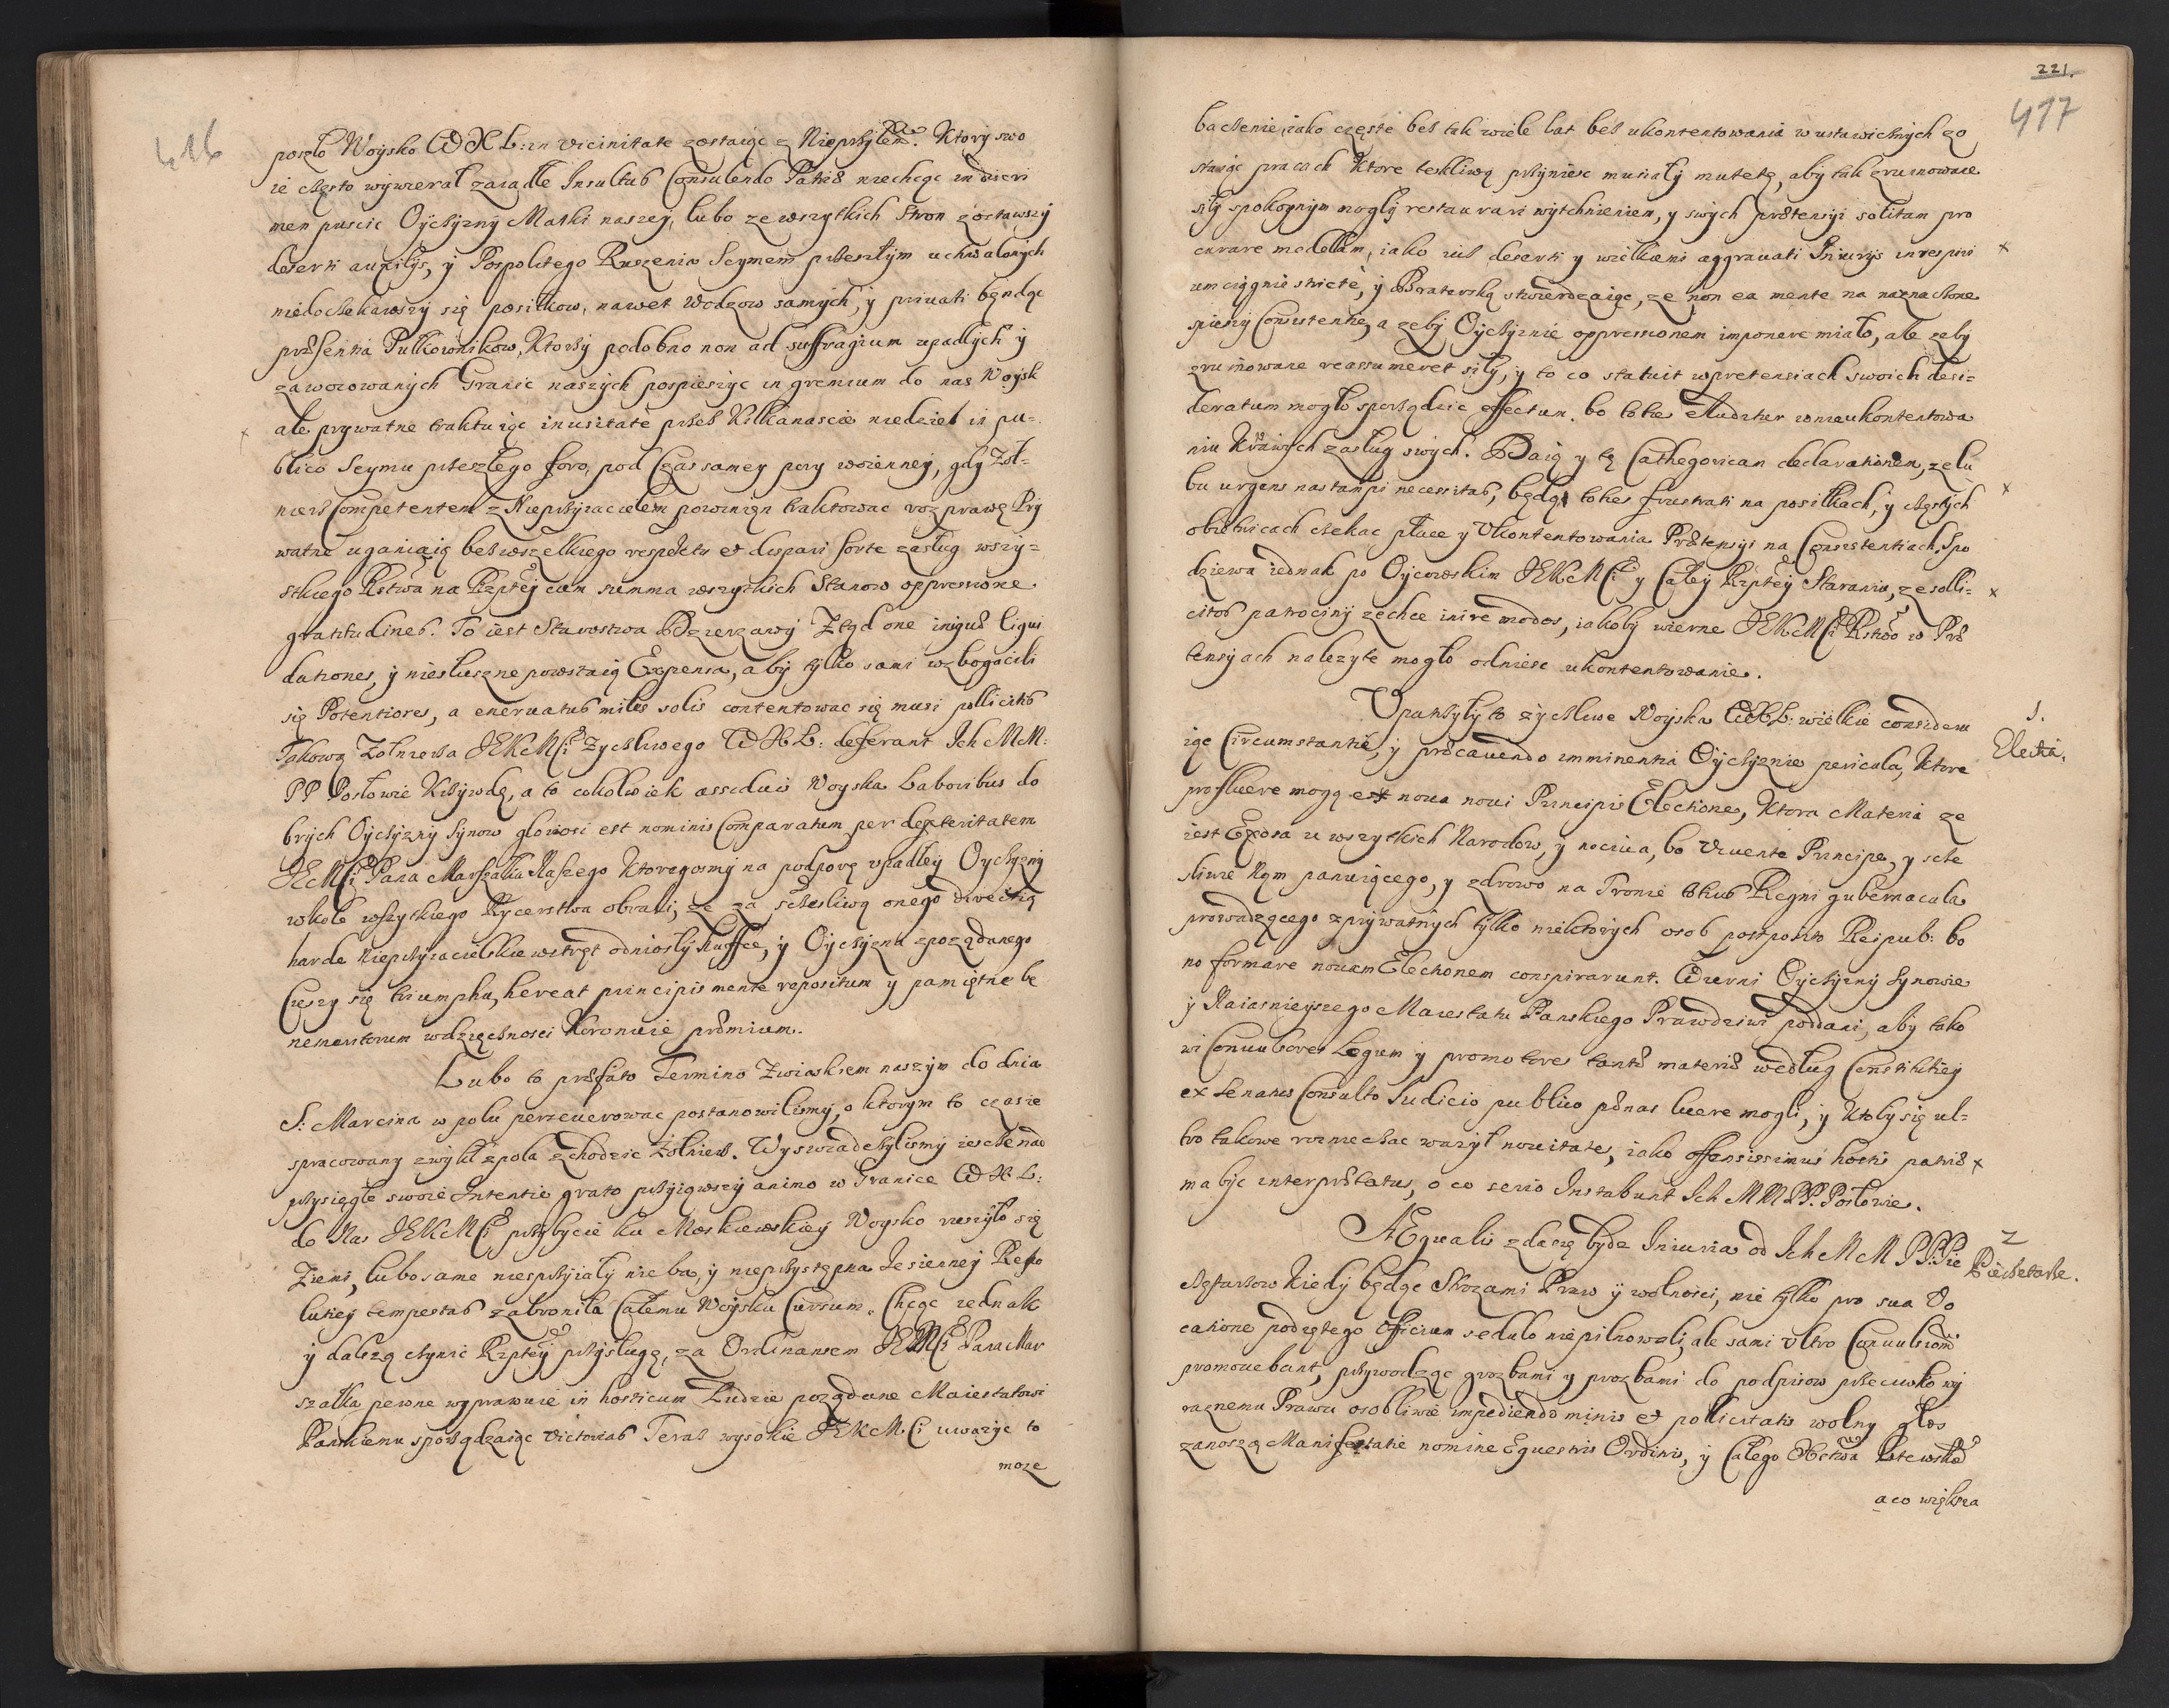 416
poszło Woysko W X L: in vicinitate zostaiąc z Nieprzylem. Ktory swo
ie często wywierał zaiadłe Insultus Consulendo Patriæ niechcąc in discri
men puscic Oyczyzny Matki naszey, lubo ze wszytkich Stron zostawszy
deserti auxilijs, y Pospolitego Ruszenia Seymem przeszłym uchwalonych
niedoczekawszy się posiłkow, nawet Wodzow samych, y priuati będąc
præsentia Pułkownikow, Ktorzy podobno non ad suffragium upadłych y
zawoiowanych Granic naszych pospieszyc in gremium do nas Woysk
ale prywatne traktuiąc inusitate przez Kilkanascie niedziel in pu=
blico Seymu przeszłego foro, pod Czas samey pory woienney, gdy Zoł=
nierz Competentem z Nieprzyiacielem powinien traktowac rozprawę Pry
watne uganiaią bez wszelkiego respektu et dispari sorte zasług wszy=
stkiego Rstwa na Rzptey cum summa wszytkich Stanow oppressione
gratitudines. To iest Starostwa Dzierzawy Ztąd one iniquæ liqui
dationes, y niesłuszne powstaią Expensa, aby tylko sami wzbogacili
się Potentiores, a eneruatus miles solis contentowac się musi pollicitis
Takową Zołnierza JEKrMści Zyczliwego W X L: deferant Ich MM:
PP Posłowie Krzywdę, a to cokolwiek assiduis Woyska Laboribus do
brych Oyczyzny Synow gloriosi est nominis Comparatum per dexteritatem
JEMści Pana Marszałka Naszego Ktoregosmy na podporę upadłey Oyczyzny
wkole wszytkiego Rycerstwa obrali, ze za szczesliwą onego direkcią
harde Nieprzyiacielskie wstręt odniosły huffce, y Oyczyzna z poządanego
Cieszy się triumphu, hereat principis mente repositum y pamiętne be
nemeritorum wdzięcznosci Koronuie præmium.
Lubo to præfato Termino Zwiaskiem naszym do dnia
S: Marcina w polu perseuerowac postanowilismy, o ktorym to czasie
spracowany zwykł z pola schodzic Zołnierz. Wyswiadczylismy ieszcze nad
przysięgłe swoie Intentie grato przyiąwszy animo w Granice W X L:
do Nas JEKrMści przybycie ku Moskiewskiey Woysko ruszyło się
Ziemi, lubo same niesprzyiały nieba, y nieprzystępna Jesienney Rewo
lutiey tempestas zabroniła Całemu Woysku Cursum. Chcąc iednak
y dalszą czynic Rzptey przysługę, za Ordinansem JEMści Pana Mar
szałka pewne wyprawuie in hosticum Ludzie poządane Maiestatowi
Panskiemu sporządzaiąc victorias Teraz wysokie JEKrMści uwazyc to
moze
221.
417
baczenie, iako częste bez tak wiele lat bez ukontentowania w ustawicznych zo
staiąc pracach Ktore teskliwą przyniesc musiały mutetę, aby tak zruinowane
siły spokoynym mogły restaurari wytchnieniem, y swych prætensyi solitam pro
curare medellam, iako iuż deserti y wielkiemi aggrauati Iniurijs in respiri
um ciągnie stricte, y Braterską stwierdzaiąc, ze non ea mente na naznaczone
spieszy Consistentie, a zeby Oyczyznie oppressionem imponere miało, ale zeby
zruinowane reassumeret siły, y to co statuit w pretensiach swoich desi=
deratum mogło sporządzic effectum. bo toties eluditur w nieukontentowa
niu Krwawych zasług swych. Daią y tę Cathegorican declarationem, ze lu
bo urgens nastąmpi necessitas, będąc toties frustrati na posiłkach, y częstych
obietnicach czekac płace y Ukontentowania Prætensyi na Consistentiach. Spo
dziewa iednak po Oycowskim JEKrMści y Całey Rzptey Staraniu, ze solli=
citos patrocinij zechce inire modos, iakoby wierne JEKrMści Rstwo w Præ
tensyach nalezyte mogło odniesc ukontentowanie.
1.
Electia.
Upatrzyły to zyczliwe Woyska WXL: wielkie consideru
iąc Circumstantie, y præcauendo imminentia Oyczyznie pericula, Ktore
profluere mogą ex noua noui Principis Electione, Ktora Materia ze
iest Exosa u wszytkich Narodow, y nociua, bo viuente Principe, y szcze
sliwie Nam panuiącego, y zdrowo na Tronie totius Regni gubernacula
prowadzącego z prywatnych tylko niektorych osob postposito Reipub: bo
no formare nouam Electionem conspirarunt. Wierni Oyczyzny Synowie
y Naiasnieyszego Maiestatu Panskiego Prawdziwi poddani, aby tako
wi Conuulsores Legum y promotores tantæ materiæ według Constitutiey
ex Senatus Consulto Iudicio publico pænas luere mogli, y Ktoby się ul=
tro takowe rozniecac wazył nouitates, iako offensissimus hostis patriæ
ma byc interpretatus, o co serio Instabunt Ich MM PP. Posłowie.
2
Pieczetarze.
AEqualis zda się bydz Iniuria od Ich MM PP. Pie
czętarzow Kiedy będąc Strozami Praw y wolnosci, nie tylko pro sua Vo
catione podiętego Officium sedulo niepilnowali, ale sami Ultro Conuulsionem
promouebant, przywodząc grozbami y prozbami do podpisow przeciwko wy
raznemu Prawu osobliwie impediendo minis et pollicitatis wolny głos
zanoszą Manifestatie nomine Equestris Ordinis, y Całego Xstwa Litewskiego
a co większa